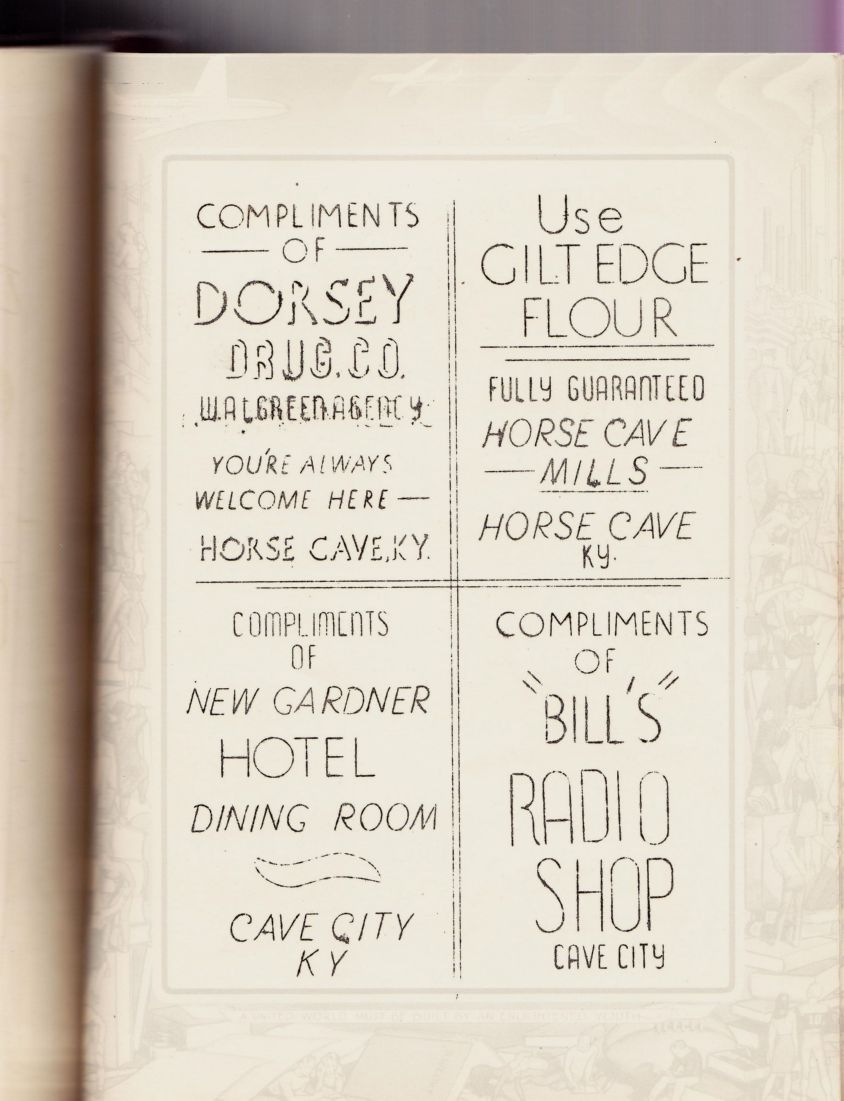 COMPLIMENTS
OF
DORSEY
DRUG. CO.
WALGREEN AGENCY
YOU'RE ALWAYS
WELCOME HERE —
HORSE CAVE, KY.
Use
GILT EDGE
FLOUR
FULLY GUARANTEED
HORSE CAVE
— MILLS —
HORSE CAVE
KY.
COMPLIMENTS
OF
NEW GARDNER
HOTEL
DINING ROOM
CAVE CITY
KY
COMPLIMENTS
OF
"BILL'S"
RADIO
SHOP
CAVE CITY
A UNITED WORLD MUST BE BUILT BY AN ENLIGHTENED YOUTH